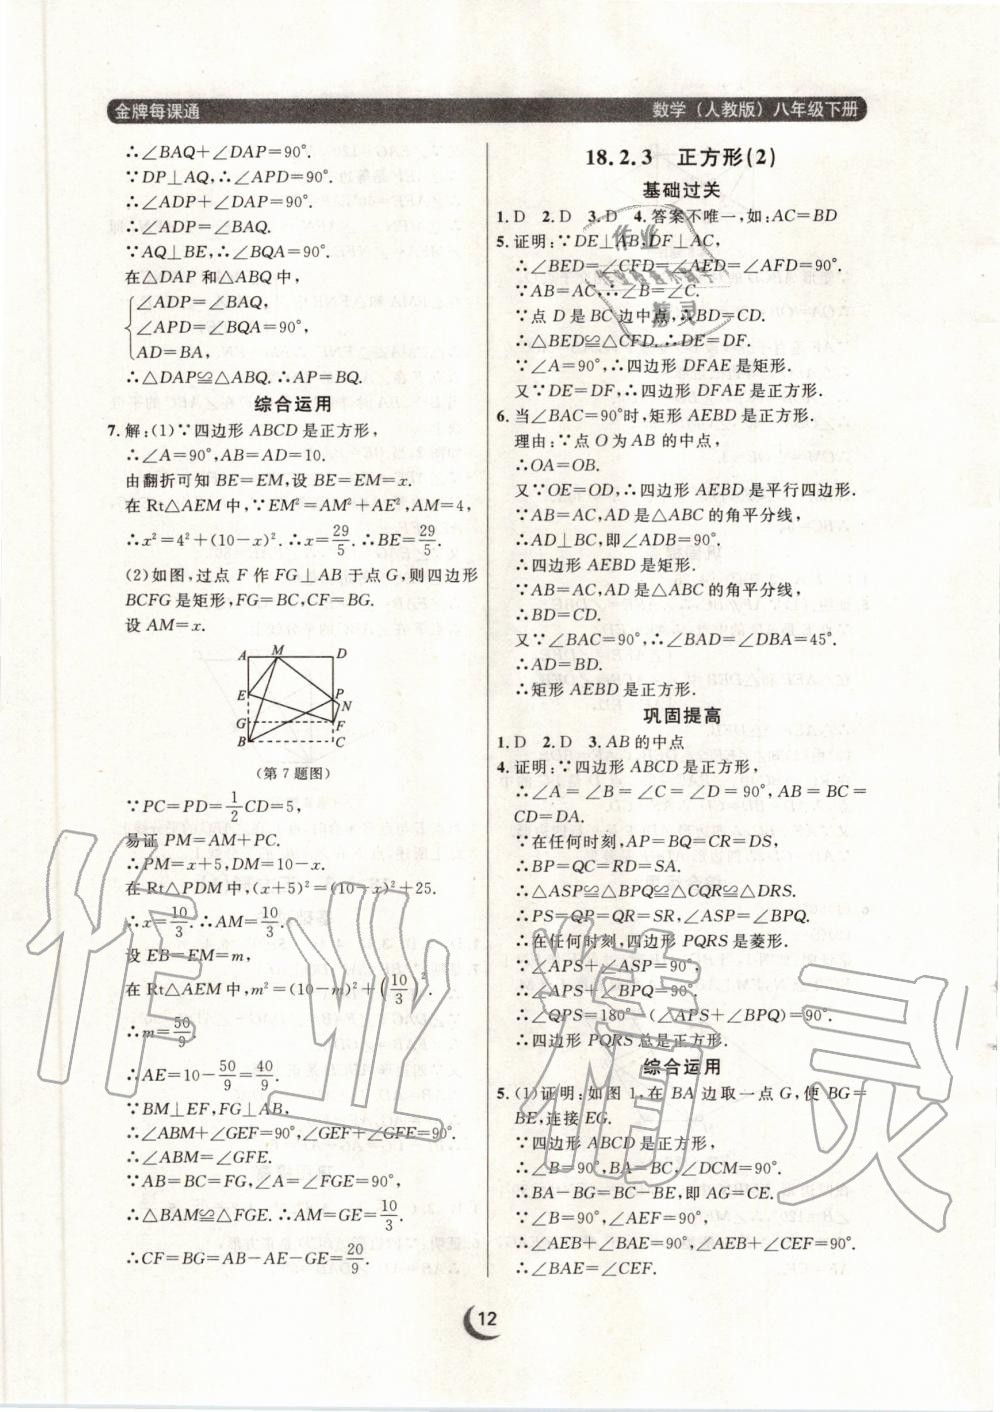 金牌每课通
数学(人教版)八年级下册
∴∠BAQ+∠DAP=90°.
∵DP⊥AQ,∴∠APD=90°.
∴∠ADP+∠DAP=90°.
∴∠ADP=∠BAQ.
∵AQ⊥BE,∴∠BQA=90°.
在△DAP 和△ABQ 中,
∠ADP=∠BAQ,
∠APD=∠BQA=90°,
AD=BA,
∴△DAP≌△ABQ.∴AP=BQ.
综合运用
7.解:(1)∵四边形 ABCD 是正方形,
∴∠A=90°,AB=AD=10.
由翻折可知 BE=EM,设 BE=EM=x.
在 Rt△AEM 中,∵EM²=AM²+AE²,AM=4,
∴x²=4²+(10-x)².∴x=29/5.∴BE=29/5.
(2)如图,过点 F 作 FG⊥AB 于点 G,则四边形
BCFG 是矩形,FG=BC,CF=BG.
设 AM=x.
A M D
E P
N
G F
B C
(第 7 题图)
∵PC=PD=1/2CD=5,
易证 PM=AM+PC.
∴PM=x+5,DM=10-x.
在 Rt△PDM 中,(x+5)²=(10-x)²+25.
∴x=10/3.∴AM=10/3.
设 EB=EM=m,
在 Rt△AEM 中,m²=(10-m)²+(10/3)².
∴m=50/9.
∴AE=10-50/9=40/9.
∵BM⊥EF,FG⊥AB,
∴∠ABM+∠GEF=90°,∠GEF+∠GFE=90°.
∴∠ABM=∠GFE.
∵AB=BC=FG,∠A=∠FGE=90°,
∴△BAM≌△FGE.∴AM=GE=10/3.
∴CF=BG=AB-AE-GE=20/9.
18.2.3 正方形(2)
基础过关
1.D 2.D 3.D 4.答案不唯一,如:AC=BD
5.证明:∵DE⊥AB,DF⊥AC,
∴∠BED=∠CFD=∠AED=∠AFD=90°.
∵AB=AC,∴∠B=∠C.
∵点 D 是 BC 边中点,∴BD=CD.
∴△BED≌△CFD.∴DE=DF.
∵∠A=90°,∴四边形 DFAE 是矩形.
又∵DE=DF,∴四边形 DFAE 是正方形.
6.当∠BAC=90°时,矩形 AEBD 是正方形.
理由:∵点 O 为 AB 的中点,
∴OA=OB.
又∵OE=OD,∴四边形 AEBD 是平行四边形.
∵AB=AC,AD 是△ABC 的角平分线,
∴AD⊥BC,即∠ADB=90°.
∴四边形 AEBD 是矩形.
∵AB=AC,AD 是△ABC 的角平分线,
∴BD=CD.
又∵∠BAC=90°,∴∠BAD=∠DBA=45°.
∴AD=BD.
∴矩形 AEBD 是正方形.
巩固提高
1.D 2.D 3.AB 的中点
4.证明:∵四边形 ABCD 是正方形,
∴∠A=∠B=∠C=∠D=90°,AB=BC=
CD=DA.
∵在任何时刻,AP=BQ=CR=DS,
∴BP=QC=RD=SA.
∴△ASP≌△BPQ≌△CQR≌△DRS.
∴PS=QP=QR=SR,∠ASP=∠BPQ.
∴在任何时刻,四边形 PQRS 是菱形.
∵∠APS+∠ASP=90°,
∴∠APS+∠BPQ=90°.
∴∠QPS=180°-(∠APS+∠BPQ)=90°.
∴四边形 PQRS 总是正方形.
综合运用
5.(1)证明:如图 1,在 BA 边取一点 G,使 BG=
BE,连接 EG.
∵四边形 ABCD 是正方形,
∴∠B=90°,BA=BC,∠DCM=90°.
∴BA-BG=BC-BE,即 AG=CE.
∵∠B=90°,∠AEF=90°,
∴∠AEB+∠BAE=90°,∠AEB+∠CEF=90°.
∴∠BAE=∠CEF.
12
作业精灵
作业
精灵